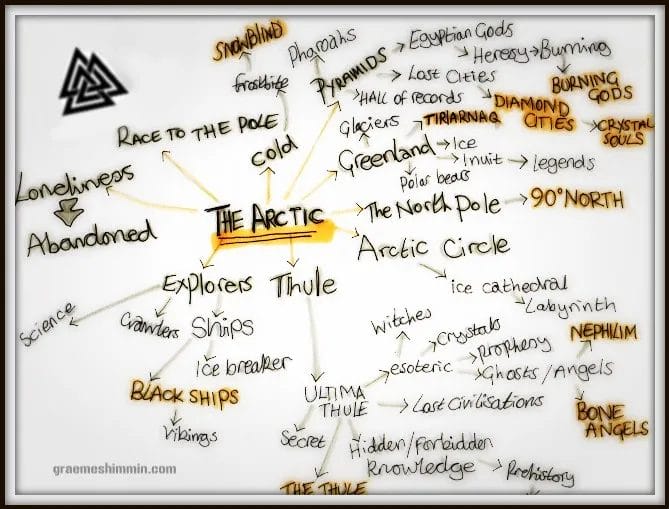 SNOWBLIND
Pharoahs
Egyptian Gods
Heresy
Burning
Frostbite
PYRAMIDS
Lost Cities
BURNING
GODS
HALL of records
DIAMOND
CITIES
Glaciers
TIRIARNAQ
CRYSTAL
SOULS
RACE TO THE POLE
Cold
Greenland
Ice
Inuit
legends
Polar bears
Loneliness
Abandoned
THE ARCTIC
The North Pole
90° NORTH
Arctic Circle
ice cathedral
Labyrinth
Explorers
Thule
Science
Crawlers
Ships
Ice breaker
BLACK SHIPS
Vikings
witches
Crystals
NEPHILIM
esoteric
prophesy
Ghosts / Angels
ULTIMA
THULE
Lost Civilisations
BONE
ANGELS
Secret
Hidden/Forbidden
Knowledge
Prehistory
THE THULE
graemeshimmin.com